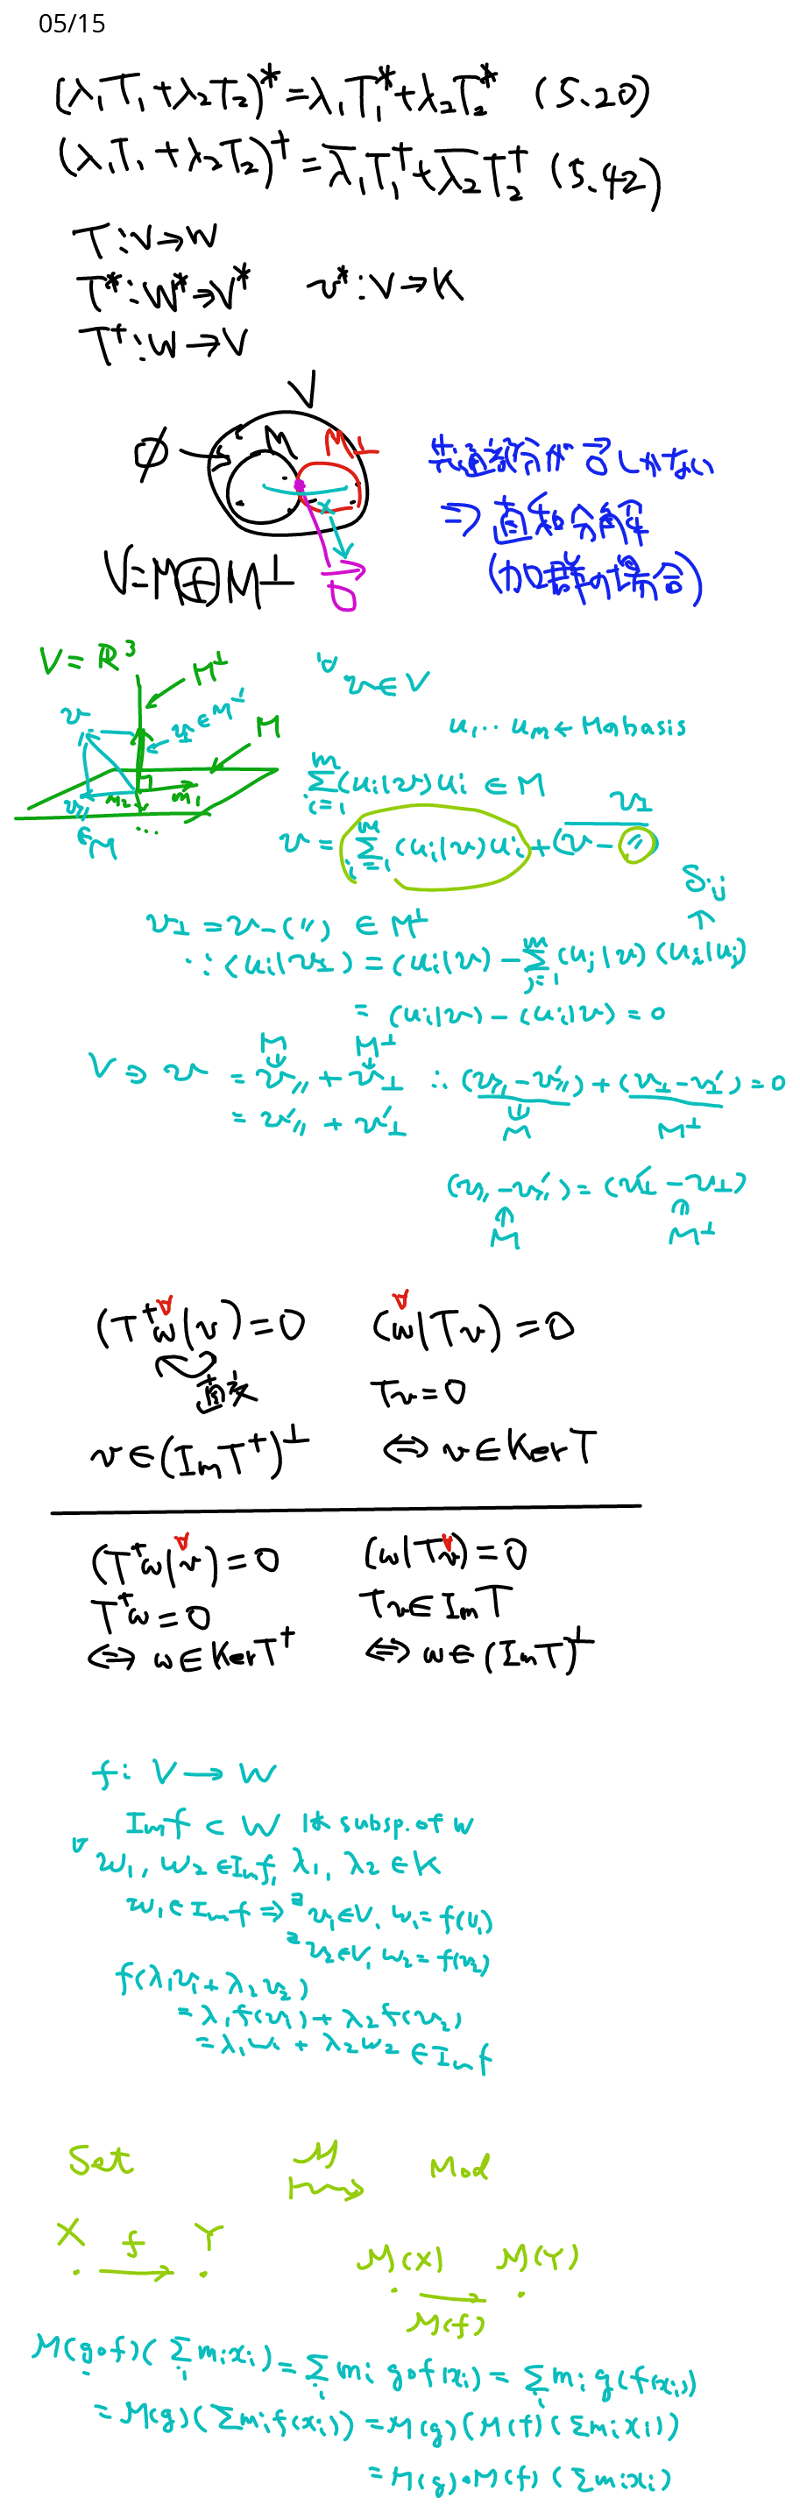 05/15
(λ₁T₁+λ₂T₂)* = λ₁T₁*+λ₂T₂* (5.20)
(λ₁T₁+λ₂T₂)† = λ̄₁T₁†+λ̄₂T₂† (5.42)
T:V→W
T*:W*→V* v*:V→K
T†:W→V
V
∅
M
M⊥
x
0
V=M⊕M⊥
V=R³
M⊥
M
∀v∈V
u₁…uₘ∈M basis
Σᵢ₌₁ᵐ(uᵢ|v)uᵢ ∈ M
v⊥
v = Σᵢ₌₁ᵐ(uᵢ|v)uᵢ+(v-〃)
δᵢⱼ
v⊥ = v-(〃) ∈ M⊥
∵(uᵢ|v⊥) = (uᵢ|v) - Σⱼ₌₁ᵐ(uⱼ|v)(uᵢ|uⱼ)
= (uᵢ|v) - (uᵢ|v) = 0
M M⊥
V∋v = v∥ + v⊥ ∴(v∥-v'∥)+(v⊥-v'⊥)=0
= v'∥ + v'⊥
M M⊥
(v∥-v'∥)=(v'⊥-v⊥)
M M⊥
(T†w|v)=0 (w|Tv)=0
Tv=0
v∈(ImT†)⊥ ⇔ v∈KerT
(T†w|v)=0 (w|Tv)=0
T†w=0 Tv∈ImT
⇔ w∈KerT† ⇔ w∈(ImT)⊥
f: V→W
Imf ⊂ W subsp. of W
∀w₁, w₂∈Imf, λ₁, λ₂∈K
w₁∈Imf ⇒ ∃v₁∈V, w₁=f(v₁)
∃v₂∈V, w₂=f(v₂)
f(λ₁v₁+λ₂v₂)
=λ₁f(v₁)+λ₂f(v₂)
=λ₁w₁+λ₂w₂∈Imf
Set M Mod
X f Y
M(X) M(Y)
M(f)
M(g∘f)(Σᵢmᵢxᵢ)=Σᵢmᵢ g∘f(xᵢ)=Σᵢmᵢg(f(xᵢ))
=M(g)(Σmᵢf(xᵢ))=M(g)(M(f)(Σmᵢxᵢ))
=M(g)∘M(f)(Σmᵢxᵢ)